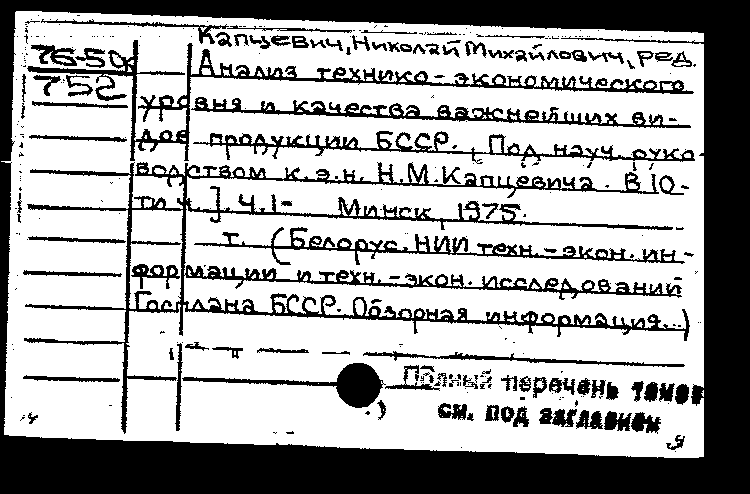 Капцевич, Николай Михайлович, ред.
76-50к
752
Анализ технико-экономического
уровня и качества важнейших ви-
дов продукции БССР. [Под науч. руко-
водством к.э.н. Н.М. Капцевича. В 10-
ти ч.]. Ч.1- Минск, 1975.
т. (Белорус. НИИ техн.-экон. ин-
формации и техн.-экон. исследований
Госплана БССР. Обзорная информация...)
Полный перечень томов
см. под заглавием